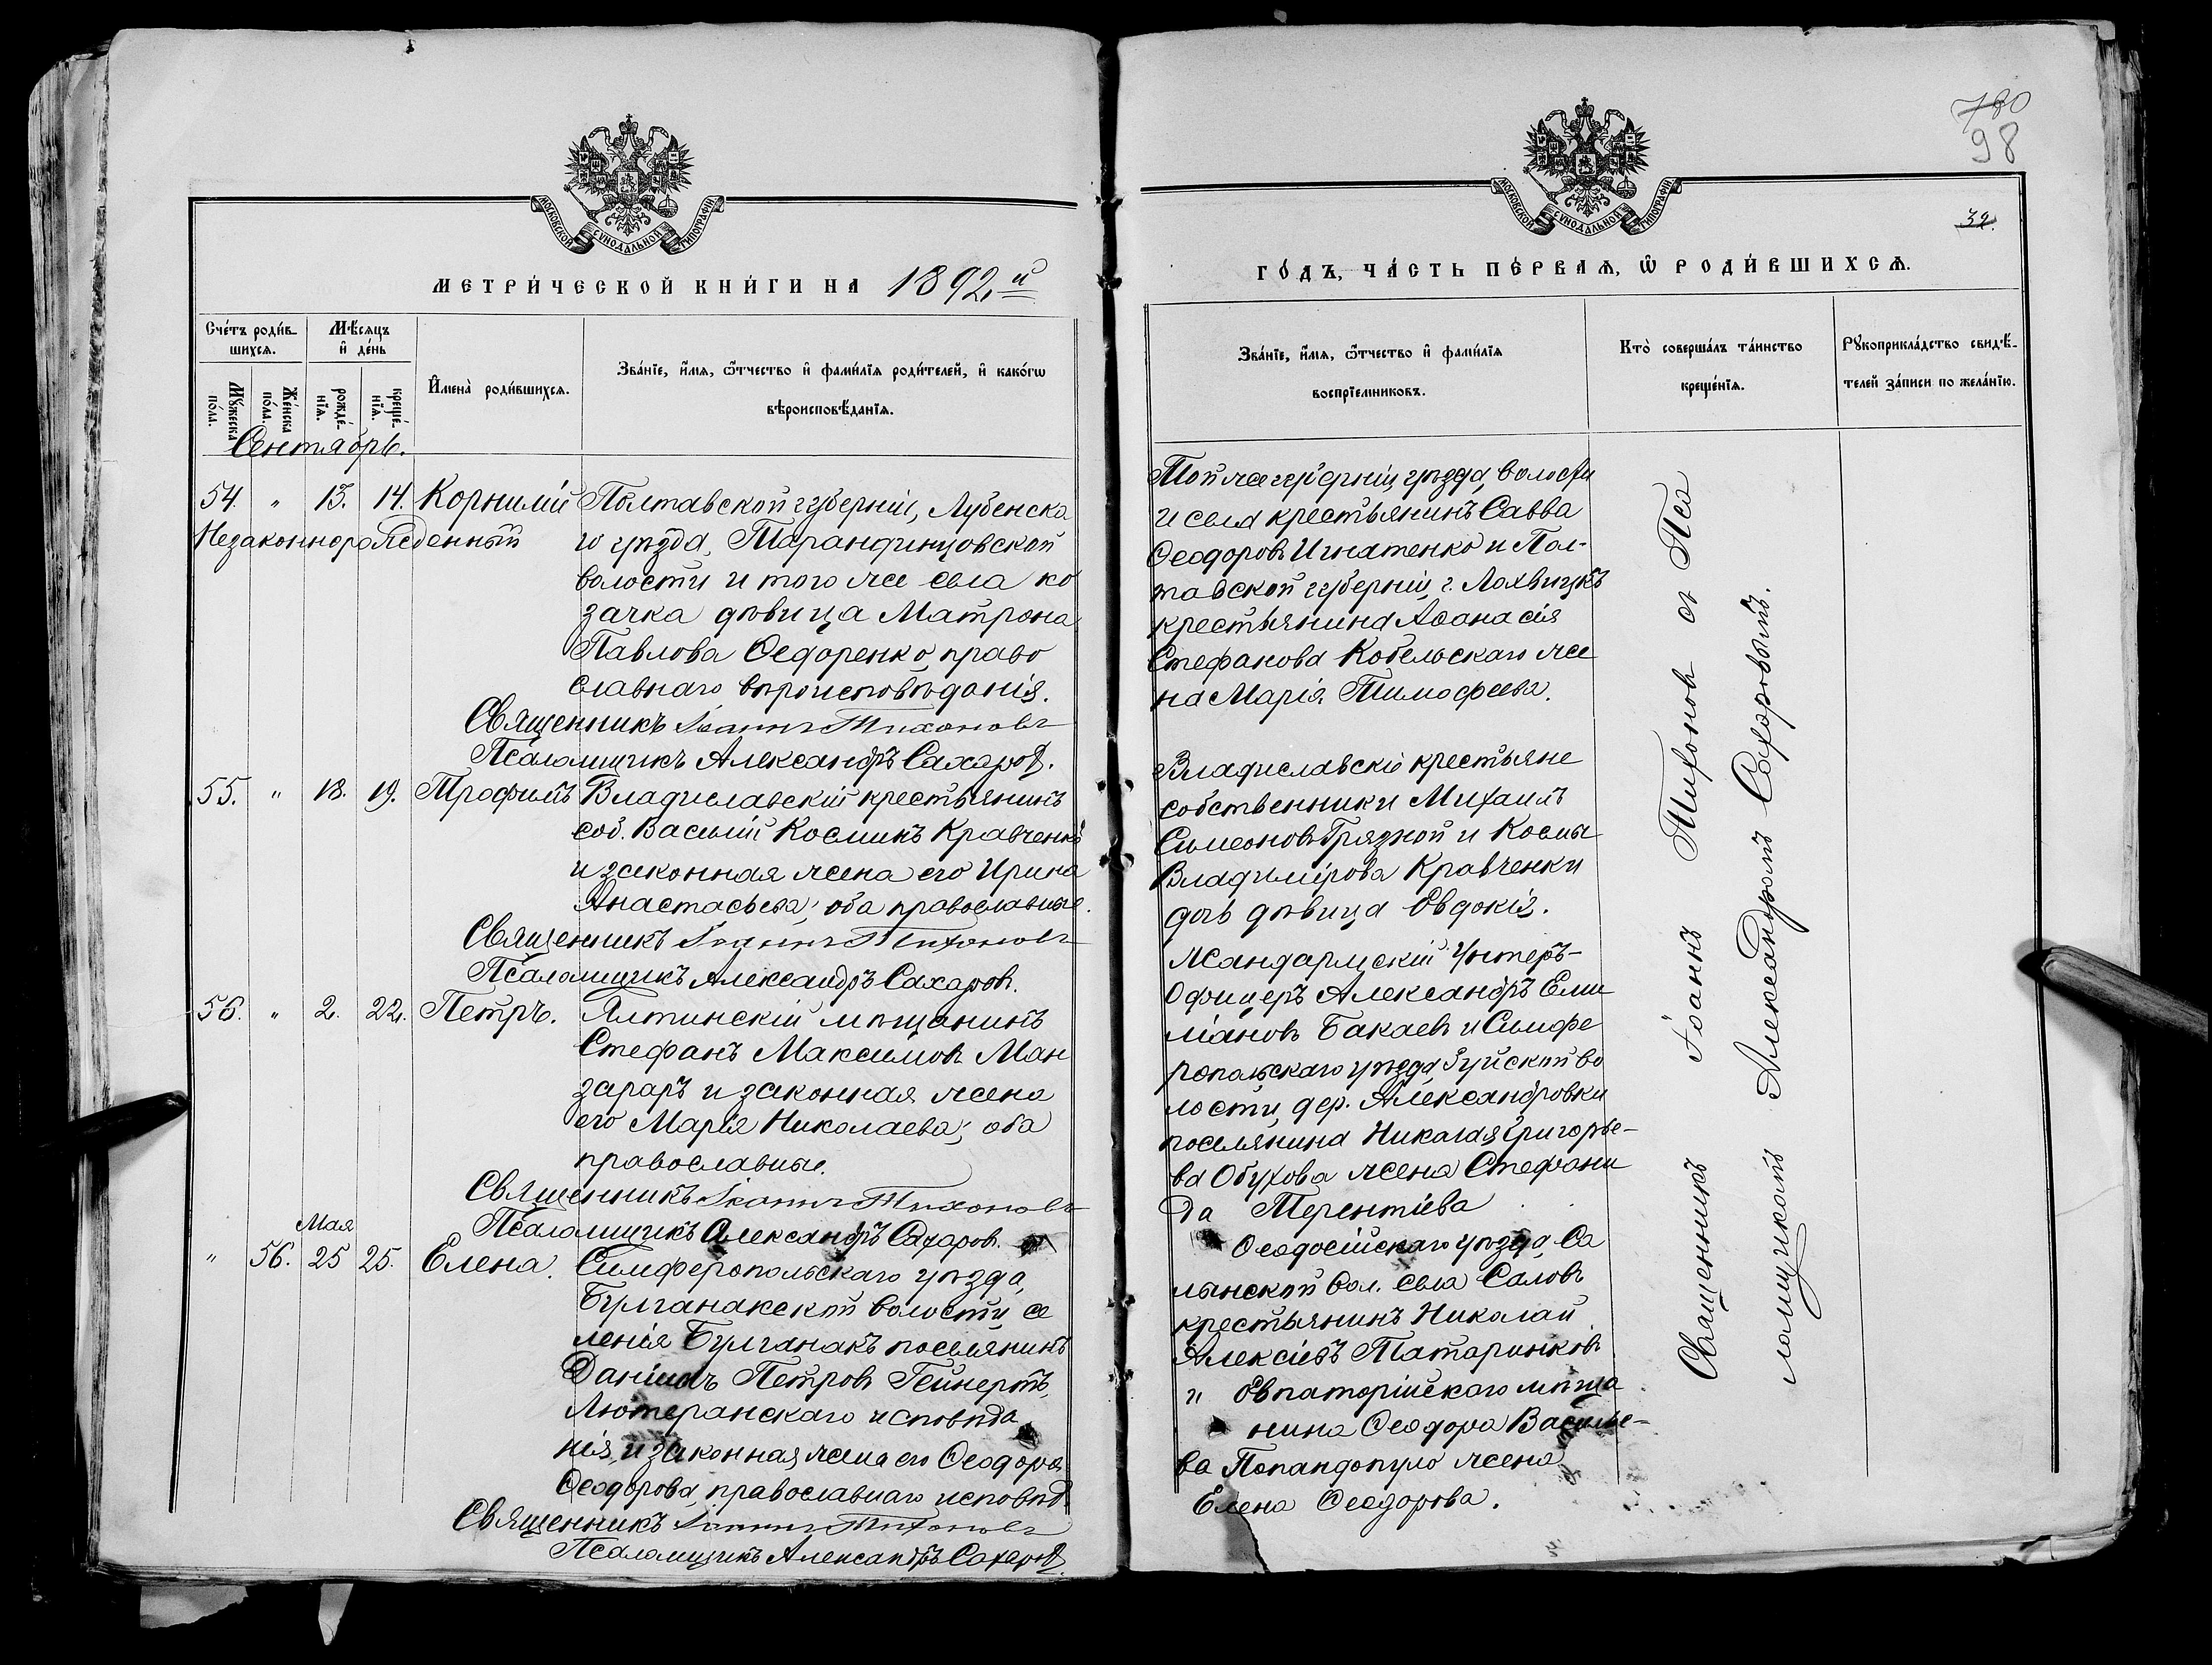 МОСКОВСКОЙ СѴНОДАЛЬНОЙ ТИПОГРАФІИ
МЕТРИ́ЧЕСКОЙ КНИ́ГИ НА 1892й
Сче́тъ роди́вшихся.
Мѣ́сяцъ и҆ де́нь
Мꙋ́жеска по́ла.
Же́нска по́ла.
рожде́нїѧ.
креще́нїѧ.
И҆мена̀ роди́вшихсѧ.
Зва́нїе, и҆́мѧ, ѻ҆́тчество и҆ фами́лїѧ роди́телей, и҆ како́гѡ
вѣроисповѣ́данїѧ.
Сентябрь.
54. " 13. 14. Корнилій Полтавской губерніи, Лубенска
Незаконнорожденный го уѣзда, Тарандинцовской
волости и того же села ко
зачка дѣвица Матрона
Павлова Ѳедоренко, право
славнаго вѣроисповѣданія.
Священникъ Іоаннъ Тихоновъ
Псаломщикъ Александръ Сахаровъ.
55. " 18. 19. Трофимъ Владиславскій крестьянинъ
соб. Василій Косминъ Кравченко
и законная жена его Ирина
Анастасьева; оба православные.
Священникъ Іоаннъ Тихоновъ
Псаломщикъ Александръ Сахаровъ.
56. " 2. 22. Петръ. Ялтинскій мѣщанинъ
Стефанъ Максимовъ Ман
зараръ и законная жена
его Марія Николаева; оба
православные.
Священникъ Іоаннъ Тихоновъ
Псаломщикъ Александръ Сахаровъ.
Мая
" 56. 25 25. Елена. Симферопольскаго уѣзда,
Булганакской волости, се
ленія Булганакъ поселянинъ
Даніилъ Петровъ Гейнертъ,
Лютеранскаго исповѣда
нія и законная жена его Ѳеодора
Ѳеодорова, православнаго исповѣд.
Священникъ Іоаннъ Тихоновъ
Псаломщикъ Александръ Сахаровъ.
780
98
32.
МОСКОВСКОЙ СѴНОДАЛЬНОЙ ТИПОГРАФІИ
ГО́ДЪ, ЧА́СТЬ ПЕ́РВАѦ, Ѡ҆ РОДИ́ВШИХСѦ.
Зва́нїе, и҆́мѧ, ѻ҆́тчество и҆ фами́лїѧ
воспрїе́мниковъ.
Кто̀ соверша́лъ та́инство
креще́нїѧ.
Рꙋкоприкла́дство свидѣ́-
телей за́писи по жела́нїю.
Той же губерніи, уѣзда, волости
и села крестьянинъ Савва
Ѳеодоровъ Игнатенко и Пол-
тавской губерніи, г. Лохвицкъ
крестьянина Аѳанасія
Стефанова Кобельскаго же
на Марія Тимоѳеева.
Владиславскіе крестьяне
собственники Михаилъ
Симеоновъ Грязной и Космы
Владимірова Кравченки
дочь дѣвица Евдокія.
Жандармскій Унтеръ-
Офицеръ Александръ Еми
ліановъ Бакаевъ и Симфе
ропольскаго уѣзда, Зуйской во
лости, дер. Александровки
поселянина Николая Григорье-
ва Обухова жена Стефани
да Терентіева
Ѳеодосійскаго уѣзда, Са
лынской вол. села Саловъ
крестьянинъ Николай
Алексіевъ Татаринковъ
и Евпаторійскаго мѣща
нина Ѳеодора Василье-
ва Попандопуло жена
Елена Ѳеодорова.
Священникъ Іоаннъ Тихоновъ съ Пса
ломщикомъ Александромъ Сахаровымъ.